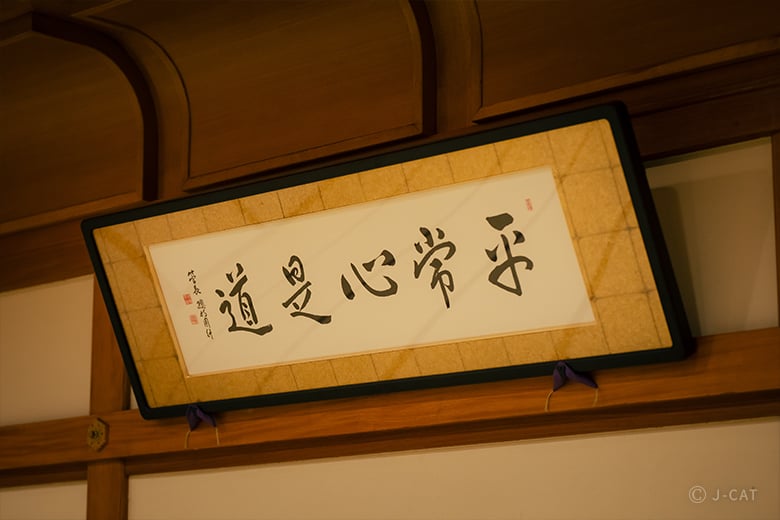 平常心是道
© J-CAT